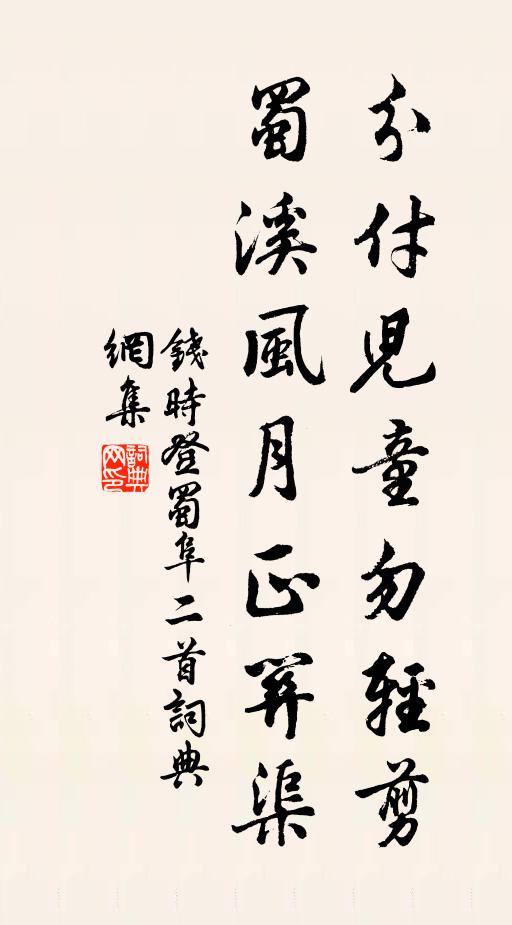 分付兒童勿輕剪
蜀溪風月正關渠
錢時登蜀阜二首詞典
網集
詞典
网印